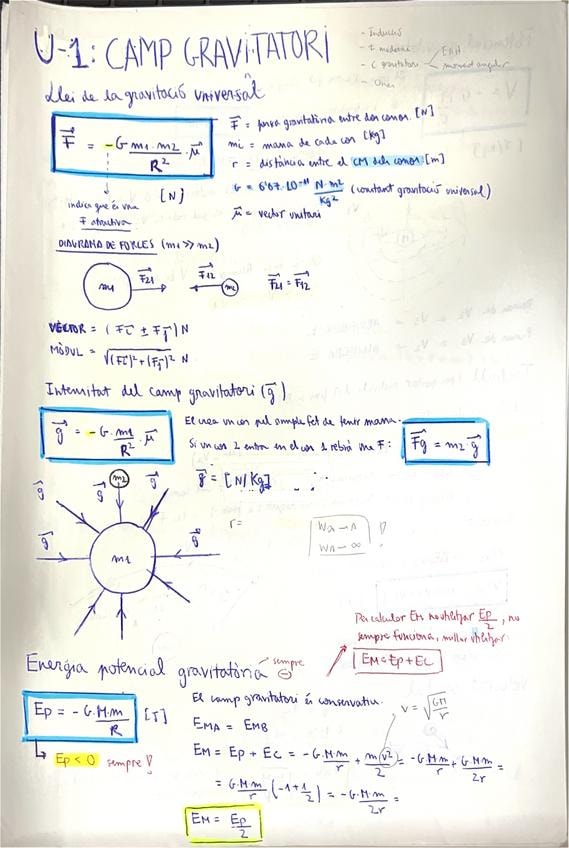 U-1: CAMP GRAVITATORI
- Inducció
- t moderna
- C gravitatori
E pot.
moment angular
- Ones
Llei de la gravitació universal
F = -G m1·m2 / R² · μ
[N]
indica que és una
F atractiva
F = força gravitatòria entre dos cossos. [N]
mi = massa de cada cos [kg]
r = distància entre el CM dels cossos [m]
G = 6'67·10⁻¹¹ N·m²/kg² (constant gravitació universal)
μ = vector unitari
DIAGRAMA DE FORCES (m1 >> m2)
m1 F21 F12 m2 F21 = F12
VECTOR = (Fi ± Fj) N
MÒDUL = √(Fi)² + (Fj)² N
Intensitat del camp gravitatori (g)
g = -G · m1 / R² · μ
El crea un cos pel simple fet de tenir massa.
Si un cos 2 entra en el cos 1 rebrà una F:
Fg = m2·g
g = [N/kg]
r =
m2
g g g
g m1 g
Per calcular Em no utilitzar Ep/2, no
sempre funciona, millor utilitzar:
EM = Ep + Ec
Energia potencial gravitatòria
sempre ⊖
Ep = -G·M·m / R [J]
Ep < 0 sempre!
El camp gravitatori és conservatiu.
v = √GM/r
EMA = EMB
EM = Ep + Ec = -G·M·m/r + m v²/2 = -G·M·m/r + G·M·m/2r =
= G·M·m/r (-1 + 1/2) = -G·M·m/2r =
EM = Ep/2